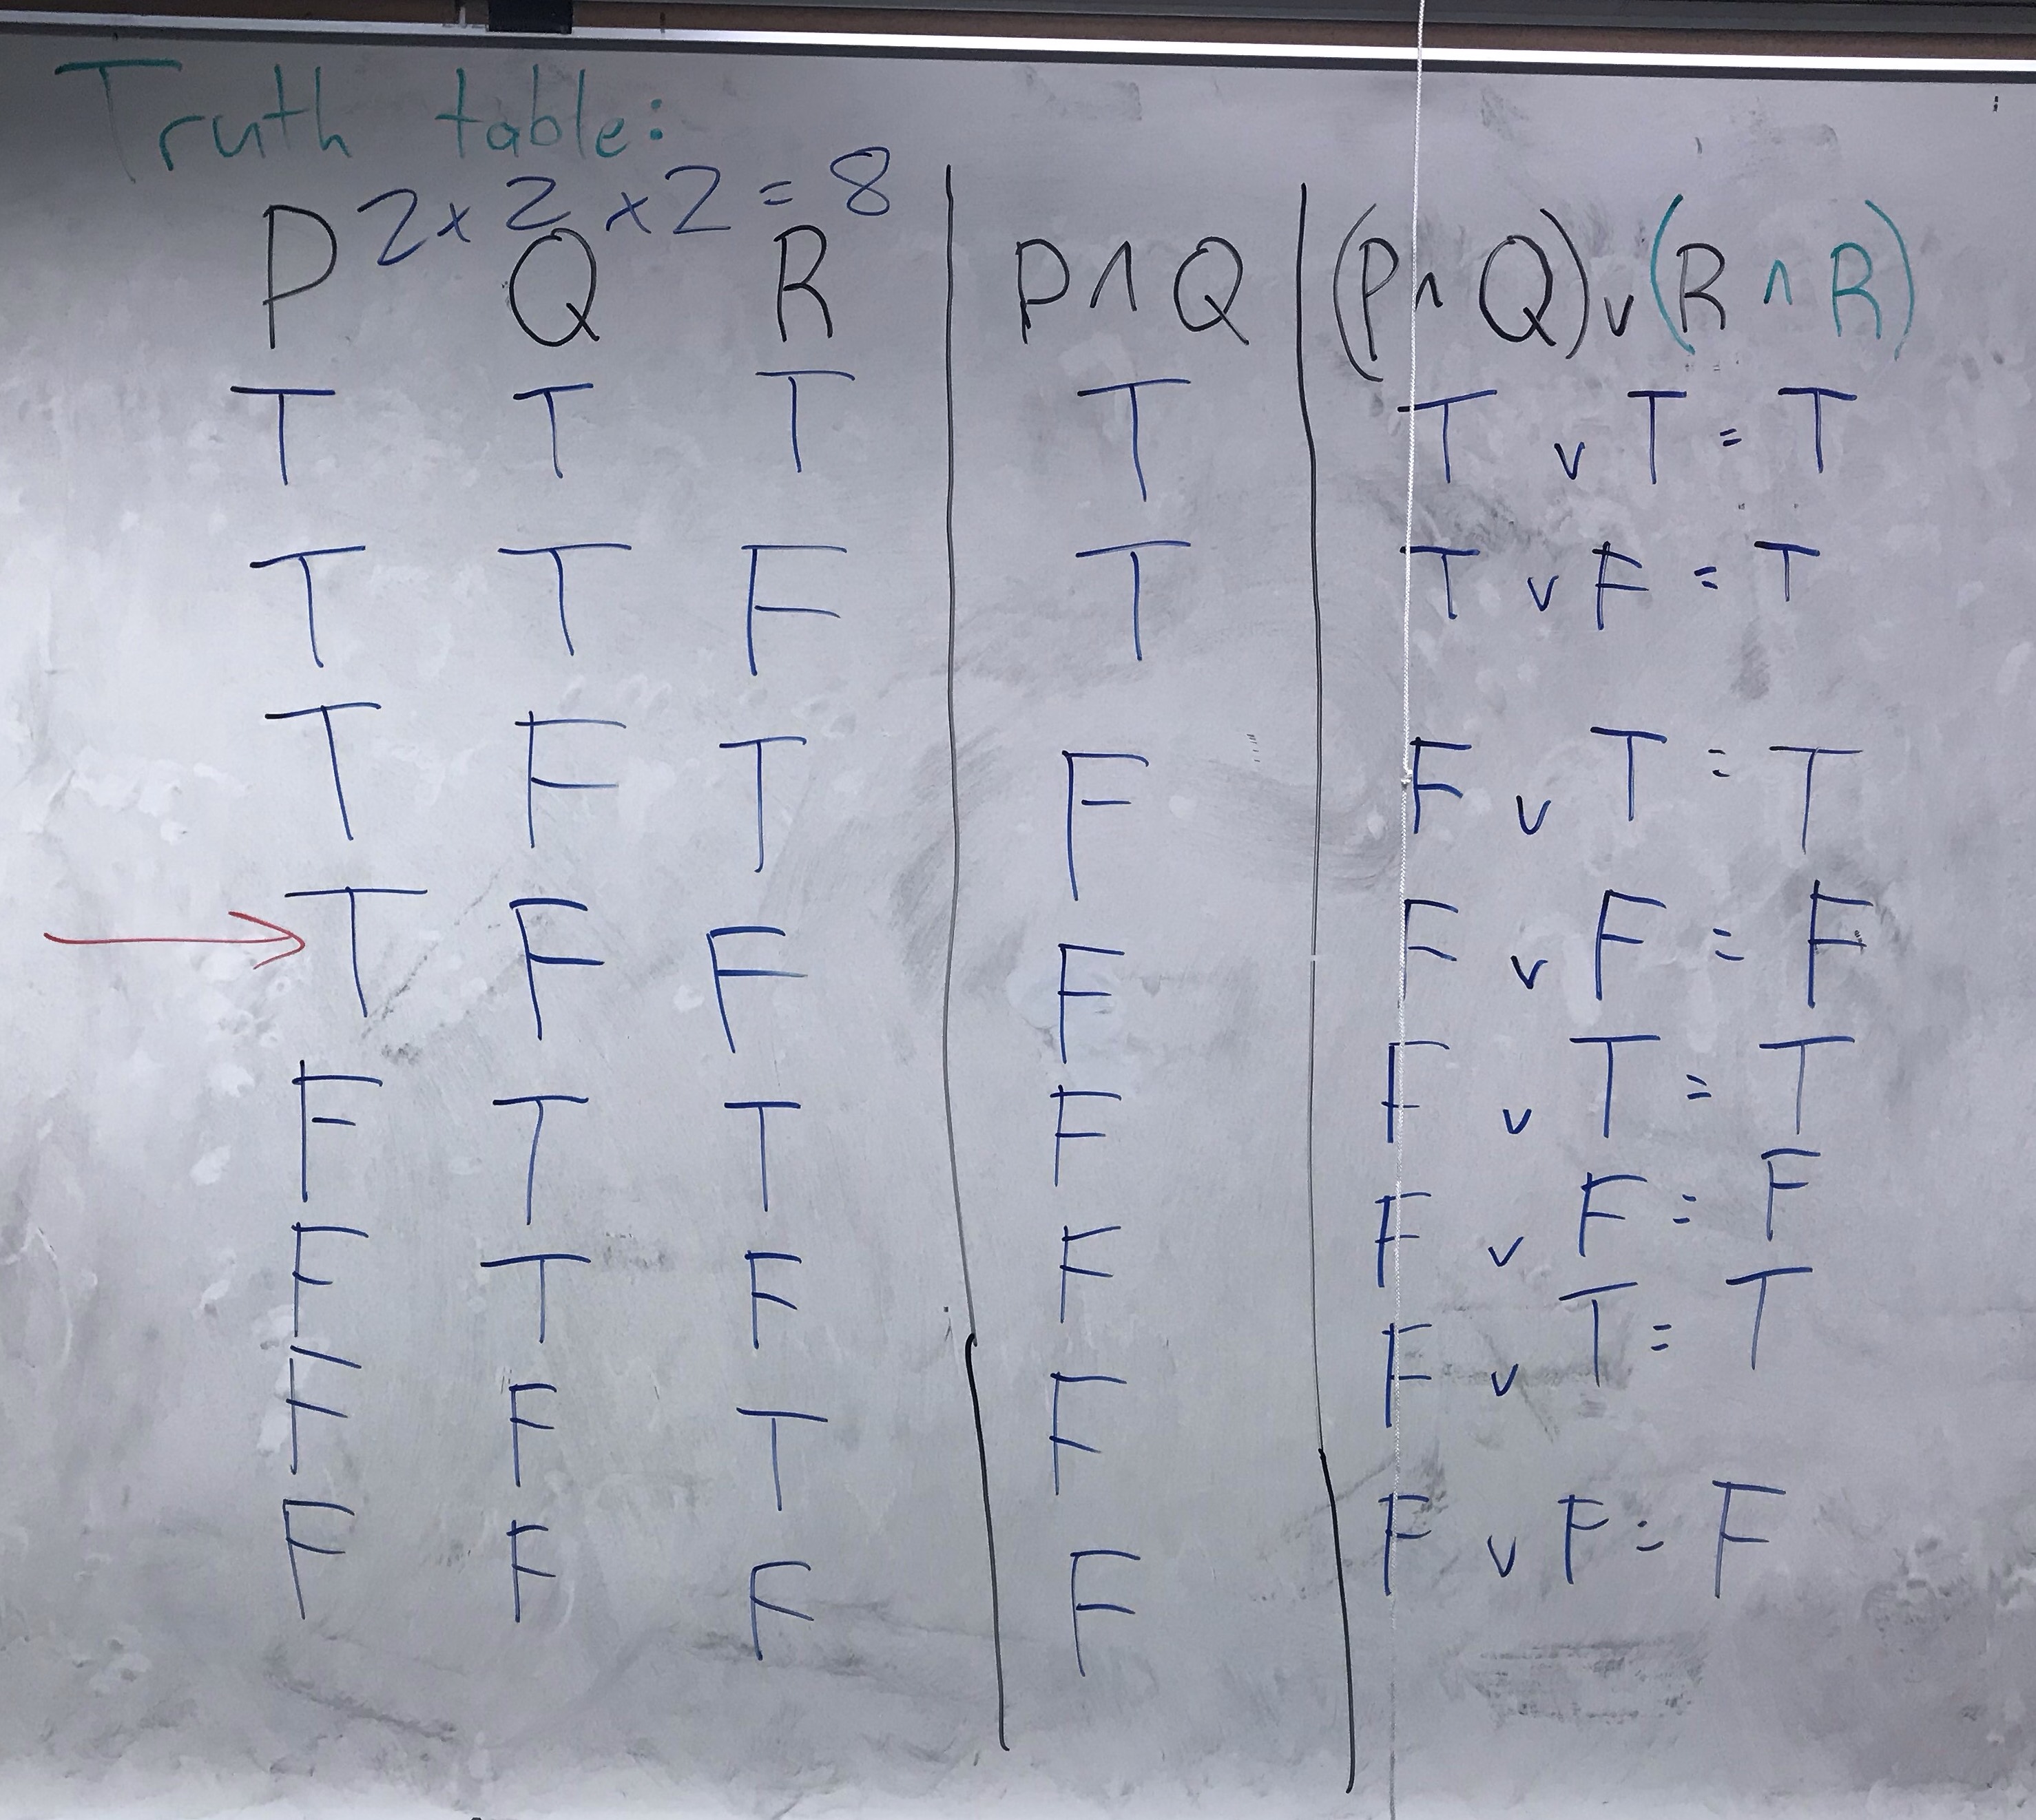 Truth table:
2 x 2 x 2 = 8
P Q R P ∧ Q (P ∧ Q) ∨ (R ∧ R)
T T T T T ∨ T = T
T T F T T ∨ F = T
T F T F F ∨ T = T
T F F F F ∨ F = F
F T T F F ∨ T = T
F T F F F ∨ F = F
F F T F F ∨ T = T
F F F F F ∨ F = F